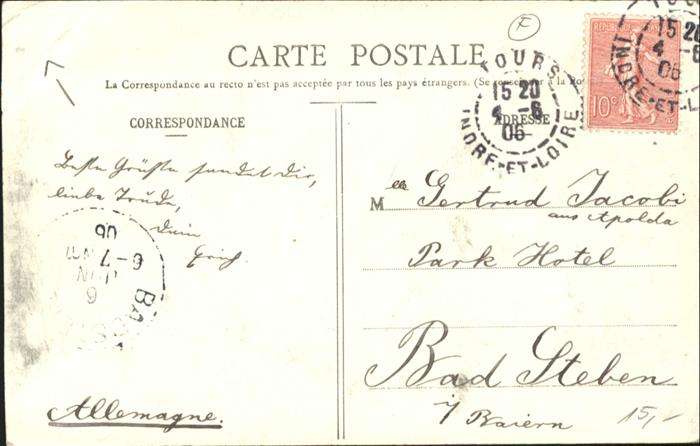 CARTE POSTALE
La Correspondance au recto n'est pas acceptée par tous les pays étrangers. (Se renseigner à la Poste
CORRESPONDANCE
ADRESSE
TOURS
15 20
4 -6
06
INDRE-ET-LOIRE
15 20
4 -6
06
INDRE-ET-L
10c
F
Beste Grüße sendet Dir,
liebe Trude,
Dein
Erich.
M elle Gertrud Jacobi
aus Apolda
Park Hotel
Bad Steben
i/ Baiern
Allemagne.
15,-
BA
6
JUN
6-7
06